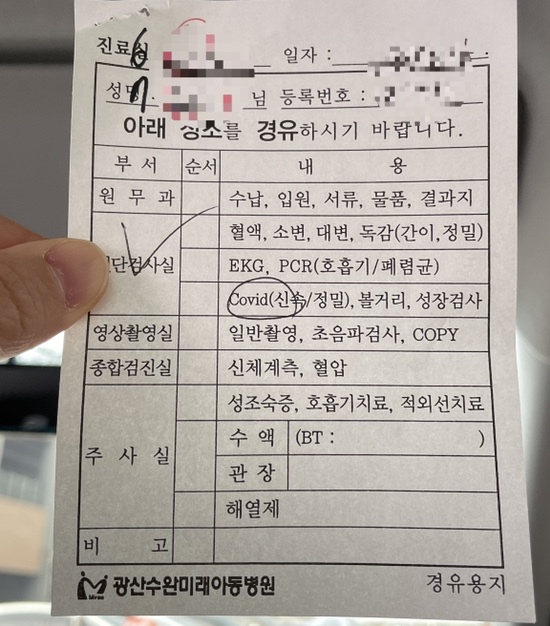 진료실 6
일자 :
성명 7. 님 등록번호 :
아래 장소를 경유하시기 바랍니다.
부 서 순서 내 용
원 무 과 수납, 입원, 서류, 물품, 결과지
혈액, 소변, 대변, 독감(간이,정밀)
진단검사실 EKG, PCR(호흡기/폐렴균)
Covid(신속/정밀), 볼거리, 성장검사
영상촬영실 일반촬영, 초음파검사, COPY
종합검진실 신체계측, 혈압
성조숙증, 호흡기치료, 적외선치료
주 사 실 수 액 (BT : )
관 장
해열제
비 고
Mirae 광산수완미래아동병원 경유용지